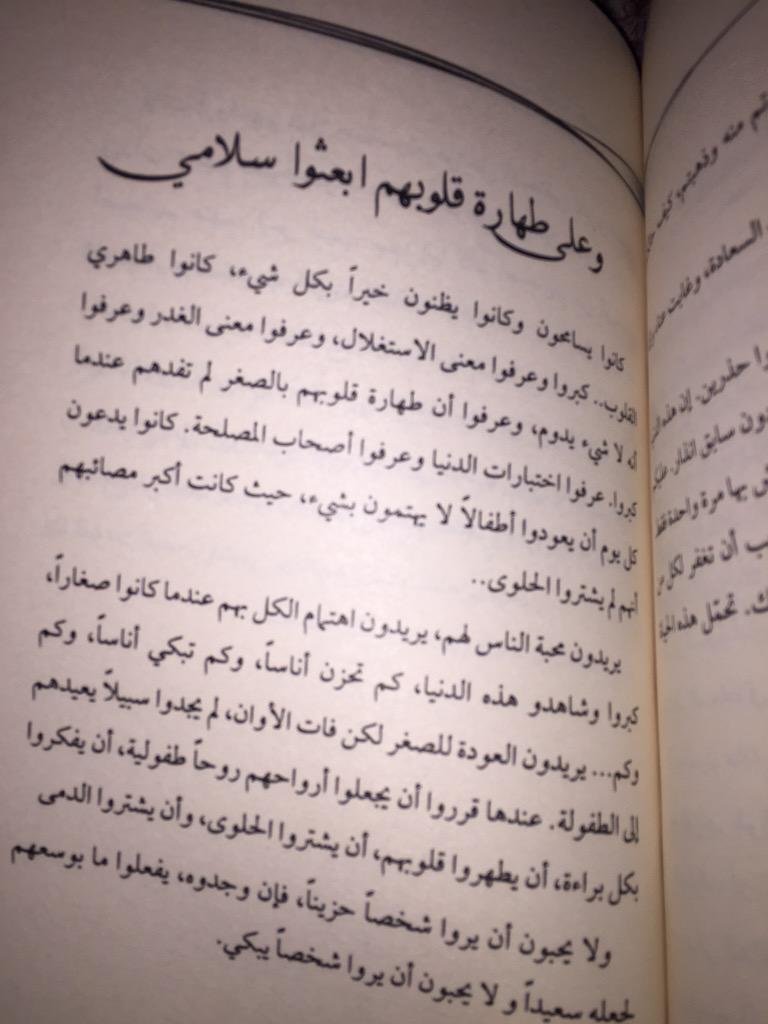 وعلى طهارة قلوبهم ابعثوا سلامي
كانوا يسامحون وكانوا يظنون خيراً بكل شيء، كانوا طاهري
القلوب.. كبروا وعرفوا معنى الاستغلال، وعرفوا معنى الغدر وعرفوا
أنه لا شيء يدوم، وعرفوا أن طهارة قلوبهم بالصغر لم تفدهم عندما
كبروا. عرفوا اختبارات الدنيا وعرفوا أصحاب المصلحة. كانوا يدعون
كل يوم أن يعودوا أطفالاً لا يهتمون بشيء، حيث كانت أكبر مصائبهم
أنهم لم يشتروا الحلوى..
يريدون محبة الناس لهم، يريدون اهتمام الكل بهم عندما كانوا صغاراً،
كبروا وشاهدو هذه الدنيا، كم تحزن أناساً، وكم تبكي أناساً، وكم
وكم... يريدون العودة للصغر لكن فات الأوان، لم يجدوا سبيلاً يعيدهم
إلى الطفولة. عندها قرروا أن يجعلوا أرواحهم روحاً طفولية، أن يفكروا
بكل براءة، أن يطهروا قلوبهم، أن يشتروا الحلوى، وأن يشتروا الدمى
ولا يحبون أن يروا شخصاً حزيناً، فإن وجدوه، يفعلوا ما بوسعهم
لجعله سعيداً و لا يحبون أن يروا شخصاً يبكي.
منه وذهبتم، كيف
السعادة، وغابت
حذرين. إن هذه
سابق انذار.
بها مرة واحدة فقط
أن تغفر لكل من
تحمّل هذه الحياة